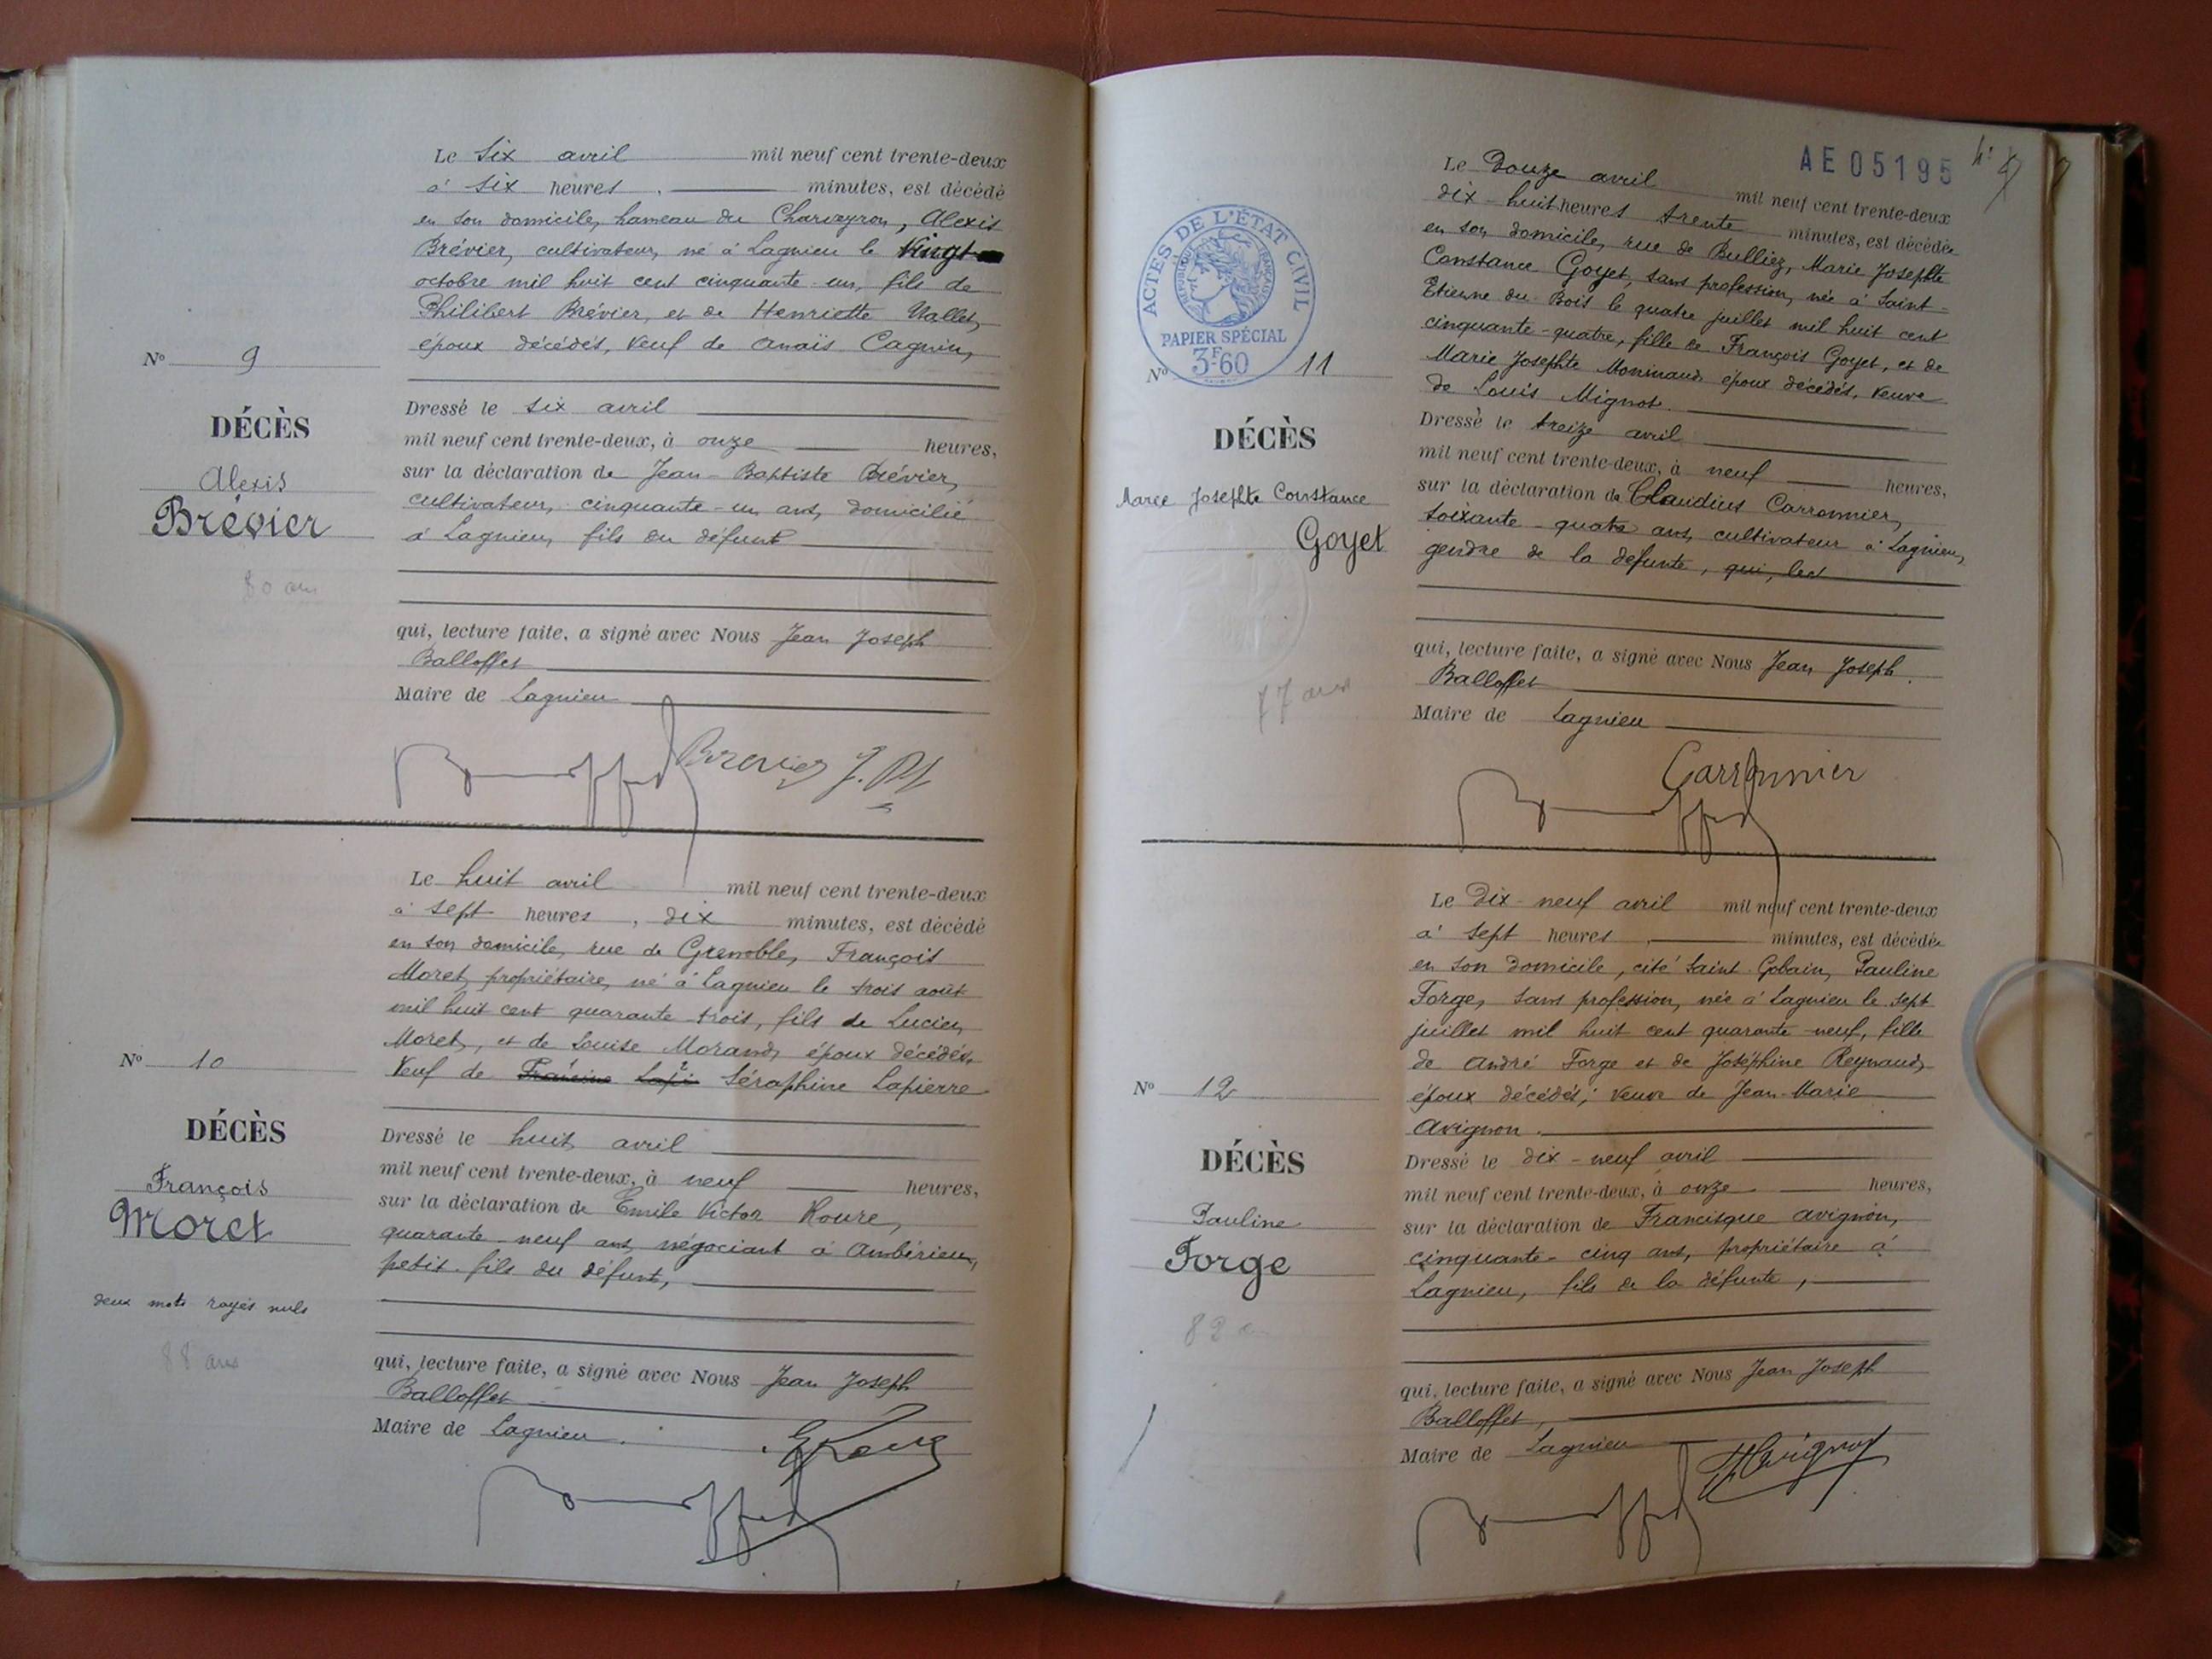 Le six avril mil neuf cent trente-deux
à six heures, minutes, est décédé
en son domicile, hameau du Charveyron, Alexis
Brévier, cultivateur, né à Lagnieu le vingt
octobre mil huit cent cinquante-un, fils de
Philibert Brévier, et de Henriette Vallet,
époux décédés, veuf de Anaïs Cagnin,
N° 9
DÉCÈS
Alexis
Brévier
80 ans
Dressé le six avril
mil neuf cent trente-deux, à onze heures,
sur la déclaration de Jean-Baptiste Brévier,
cultivateur, cinquante-un ans, domicilié
à Lagnieu, fils du défunt
qui, lecture faite, a signé avec Nous Jean Joseph
Balloffet
Maire de Lagnieu
Brevier J. Bt
Le huit avril mil neuf cent trente-deux
à sept heures, dix minutes, est décédé
en son domicile, rue de Grenoble, François
Moret, propriétaire, né à Lagnieu le trois août
mil huit cent quarante-trois, fils de Lucien
Moret, et de Louise Morand, époux décédés,
Veuf de Francine Lapi Séraphine Lapierre
N° 10
DÉCÈS
François
Moret
deux mots rayés nuls
88 ans
Dressé le huit avril
mil neuf cent trente-deux, à neuf heures,
sur la déclaration de Emile Victor Roure,
quarante-neuf ans, négociant à Ambérieu,
petit-fils du défunt,
qui, lecture faite, a signé avec Nous Jean Joseph
Balloffet
Maire de Lagnieu.
AE 05195
Le Douze avril mil neuf cent trente-deux
dix-huit heures trente minutes, est décédée
en son domicile, rue de Bulliez, Marie Josephte
Constance Goyet, sans profession, née à Saint-
Etienne du Bois le quatre juillet mil huit cent
cinquante-quatre, fille de François Goyet, et de
Marie Josephte Moninaud époux décédés, veuve
de Louis Mignot.
ACTES DE L'ÉTAT CIVIL
RÉPUBLIQUE FRANÇAISE
PAPIER SPÉCIAL
3F60
N° 11
DÉCÈS
Marie Josephte Constance
Goyet
77 ans
Dressé le treize avril
mil neuf cent trente-deux, à neuf heures,
sur la déclaration de Claudius Carronnier,
soixante-quatre ans, cultivateur à Lagnieu,
gendre de la défunte, qui, lec
qui, lecture faite, a signé avec Nous Jean Joseph
Balloffet
Maire de Lagnieu
Carronnier
Le Dix-neuf avril mil neuf cent trente-deux
à sept heures, minutes, est décédée
en son domicile, cité Saint Gobain, Pauline
Forge, sans profession, née à Lagnieu le sept
juillet mil huit cent quarante-neuf, fille
de André Forge et de Joséphine Reynaud,
époux décédés; veuve de Jean-Marie
Avignon.
N° 12
DÉCÈS
Pauline
Forge
82 ans
Dressé le dix-neuf avril
mil neuf cent trente-deux, à onze heures,
sur la déclaration de Francisque Avignon,
cinquante-cinq ans, propriétaire à
Lagnieu, fils de la défunte,
qui, lecture faite, a signé avec Nous Jean Joseph
Balloffet,
Maire de Lagnieu
Avignon